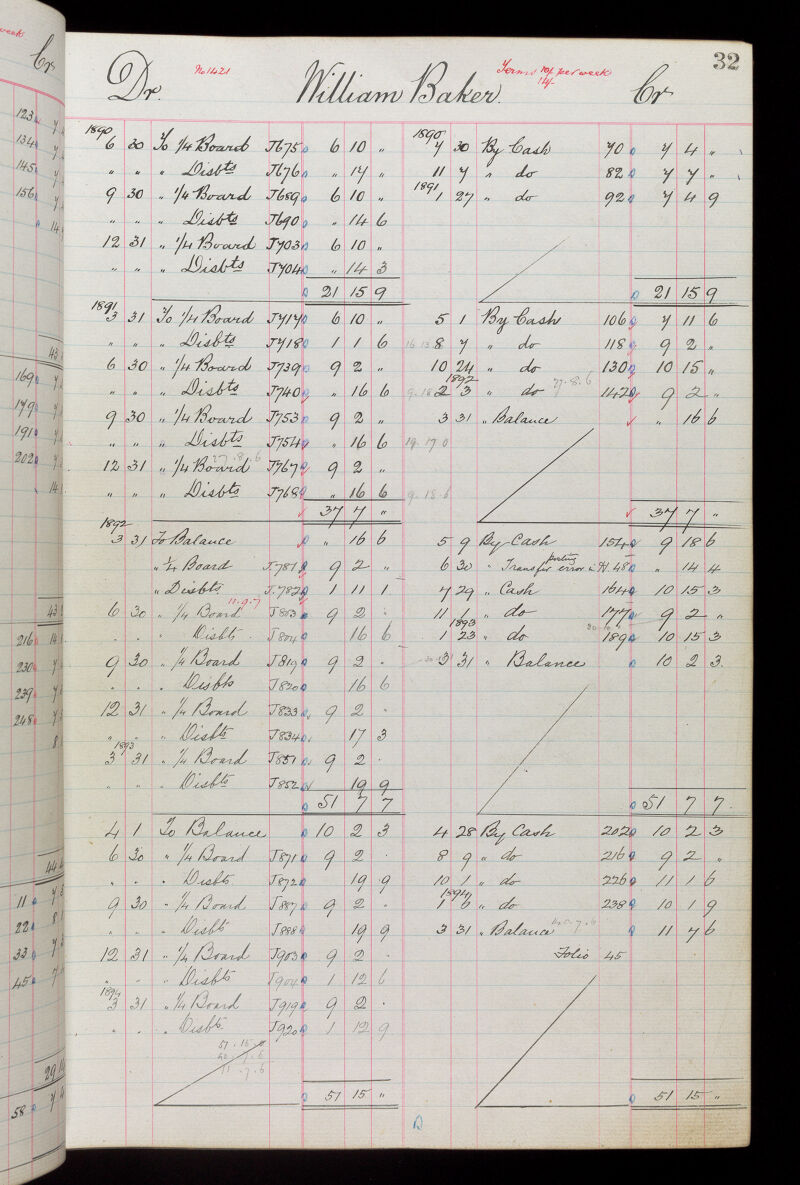 32
No 1421
Terms 10/- per week
14/-
Dr. William Baker. Cr
1890 1890
6 30 To 1/4 Board J675 6 10 " 7 30 By Cash 70 7 4 "
" " " Disbts J676 " 14 " 11 7 " do 82 7 7 "
1891
9 30 " 1/4 Board J689 6 10 " 1 27 " do 92 7 4 9
" " " Disbts J690 " 14 6
12 31 " 1/4 Board J703 6 10 "
" " " Disbts J704 " 14 3
21 15 9 21 15 9
1891
3 31 To 1/4 Board J717 6 10 " 5 1 By Cash 106 7 11 6
" " " Disbts J718 1 1 6 16 13 8 7 " do 118 9 2 "
6 30 " 1/4 Board J739 9 2 " 10 24 " do 130 10 15 "
1892 27.8.6
" " " Disbts J740 " 16 6 9.18 2 3 " do 142 9 2 "
9 30 " 1/4 Board J753 9 2 " 3 31 " Balance " 16 6
" " " Disbts J754 " 16 6 19 17 0
27.8.6
12 31 " 1/4 Board J767 9 2 "
" " " Disbts J768 " 16 6 9.18.6
37 7 " 37 7 "
1892
3 31 To Balance " 16 6 5 9 By Cash 154 9 18 6
" 1/4 Board J.781 9 2 " 6 30 " Transfer posting error H.48 " 14 4
" Disbts J.782 1 11 1 7 29 " Cash 164 10 15 3
11.9.7
6 30 " 1/4 Board J803 9 2 . 11 1 " do 177 9 2 "
1893
. . . Disbts J804 16 6 1 23 " do 189 10 15 3
9 30 " 1/4 Board J819 9 2 . 3 31 " Balance 10 2 3
. . . Disbts J820 16 6
12 31 " 1/4 Board J833 9 2 .
" . . Disbts J834 17 3
1893
3 31 " 1/4 Board J851 9 2 .
. . . Disbts J852 19 9
51 7 7 51 7 7
4 1 To Balance 10 2 3 4 28 By Cash 202 10 2 3
6 30 " 1/4 Board J871 9 2 . 8 9 " do 216 9 2 "
. . . Disbts J872 19 9 10 1 " do 226 11 1 6
1894
9 30 " 1/4 Board J887 9 2 . 1 6 " do 238 10 1 9
40.7.6
. . . Disbts J888 19 9 3 31 " Balance 11 7 6
12 31 " 1/4 Board J903 9 2 . Folio 45
" . . Disbts J904 1 12 6
1894
3 31 " 1/4 Board J919 9 2 .
. . . Disbts J920 1 12 9
51.15.0
40.7.6
11.7.6
51 15 " 51 15 "